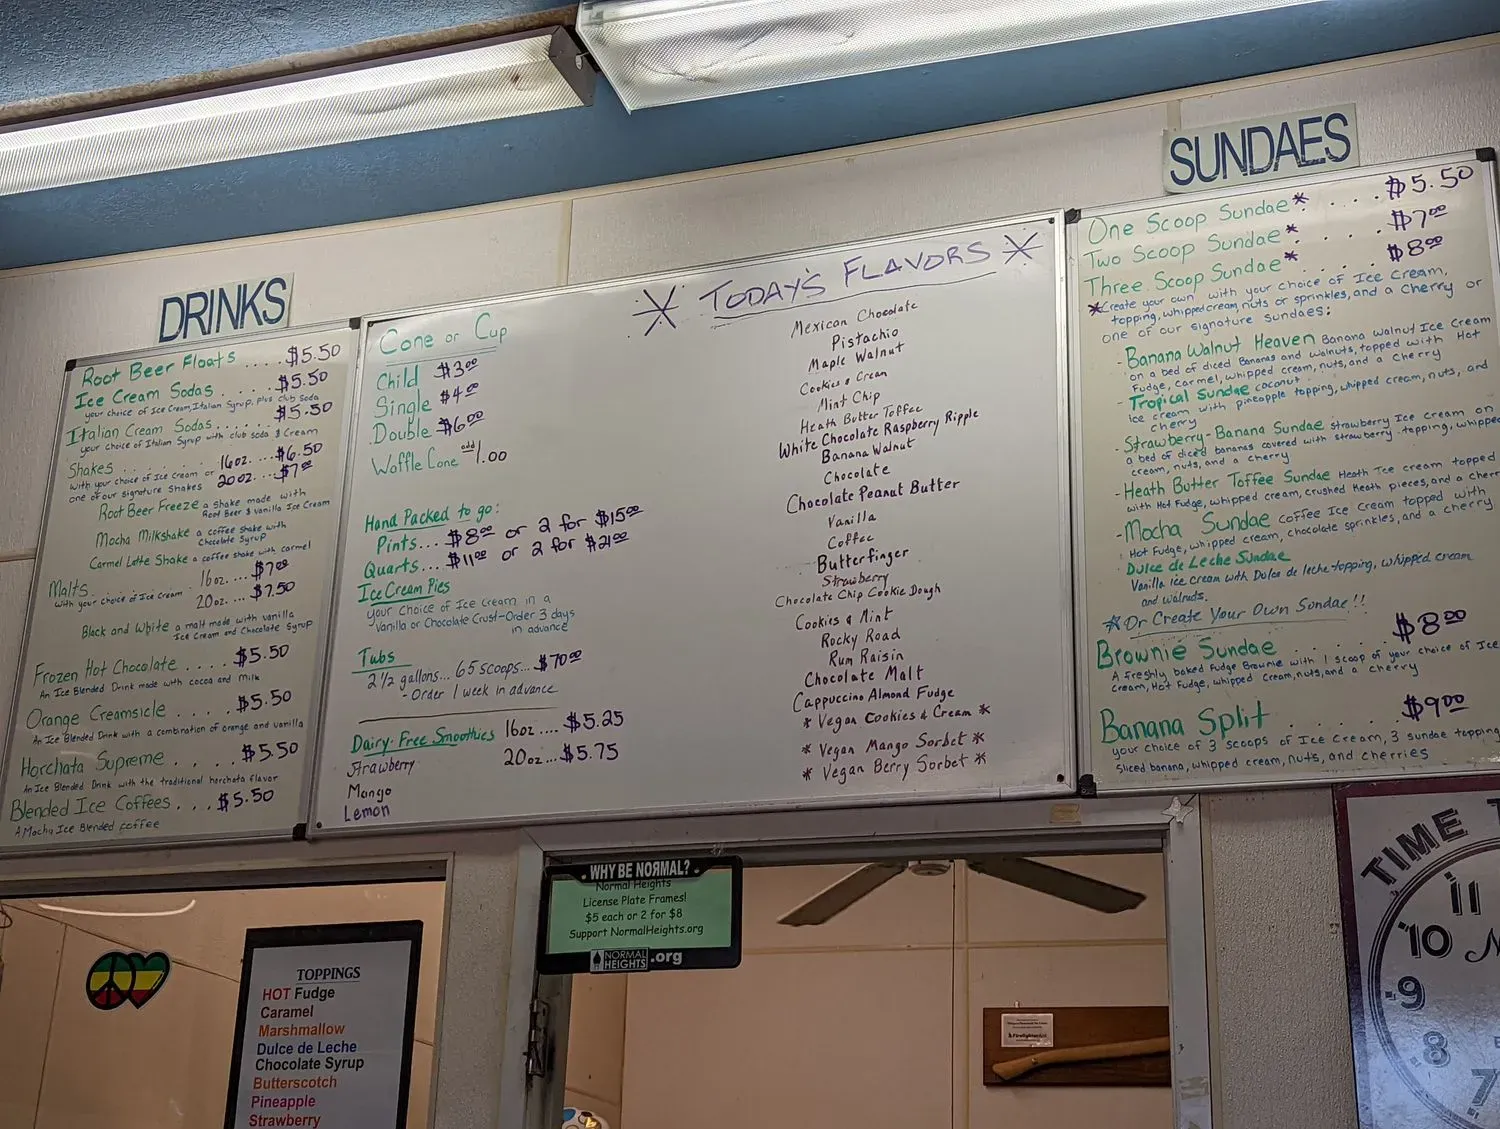 DRINKS
Root Beer Floats .... $5.50
Ice Cream Sodas .... $5.50
your choice of Ice Cream, Italian Syrup, plus club Soda
Italian Cream Sodas...... $5.50
your choice of Italian Syrup with club soda & Cream
Shakes ......... 16oz. ... $6.50
with your choice of Ice Cream or 20oz. ... $7.00
one of our signature Shakes
Root Beer Freeze a shake made with
Root Beer & Vanilla Ice Cream
Mocha Milkshake a coffee shake with
Chocolate Syrup
Carmel Latte Shake a coffee shake with carmel
Malts 16oz.... $7.00
with your choice of Ice Cream 20oz... $7.50
Black and White a malt made with vanilla
Ice Cream and Chocolate Syrup
Frozen Hot Chocolate .... $5.50
An Ice Blended Drink made with cocoa and milk
Orange Creamsicle .... $5.50
An Ice Blended Drink with a combination of orange and vanilla
Horchata Supreme .... $5.50
An Ice Blended Drink with the traditional horchata flavor
Blended Ice Coffees ... $5.50
A Mocha Ice Blended coffee
Cone or Cup
Child $3.00
Single $4.00
Double $6.00
Waffle Cone add 1.00
Hand Packed to go:
Pints... $8.00 or 2 for $15.00
Quarts... $11.00 or 2 for $21.00
Ice Cream Pies
your choice of Ice cream in a
Vanilla or Chocolate Crust-Order 3 days
in advance
Tubs
2 1/2 gallons... 65 scoops... $70.00
- Order 1 week in advance
Dairy-Free Smoothies 16oz .... $5.25
Strawberry 20oz... $5.75
Mango
Lemon
* TODAY'S FLAVORS *
Mexican Chocolate
Pistachio
Maple Walnut
Cookies & Cream
Mint Chip
Heath Butter Toffee
White Chocolate Raspberry Ripple
Banana Walnut
Chocolate
Chocolate Peanut Butter
Vanilla
Coffee
Butterfinger
Strawberry
Chocolate Chip Cookie Dough
Cookies & Mint
Rocky Road
Rum Raisin
Chocolate Malt
Cappuccino Almond Fudge
* Vegan Cookies & Cream *
* Vegan Mango Sorbet *
* Vegan Berry Sorbet *
SUNDAES
One Scoop Sundae* .... $5.50
Two Scoop Sundae* .... $7.00
Three Scoop Sundae* .... $8.00
*Create your own with your choice of Ice Cream,
topping, whipped cream, nuts or sprinkles, and a Cherry or
one of our signature sundaes:
- Banana Walnut Heaven Banana Walnut Ice Cream
on a bed of diced Bananas and Walnuts, topped with Hot
Fudge, carmel, whipped cream, nuts, and a Cherry
- Tropical Sundae coconut
ice cream with pineapple topping, whipped cream, nuts, and
cherry
- Strawberry-Banana Sundae strawberry Ice Cream on
a bed of diced bananas covered with strawberry topping, whipped
cream, nuts, and a cherry
- Heath Butter Toffee Sundae Heath Ice cream topped
with Hot Fudge, whipped cream, crushed Heath pieces, and a cherry
- Mocha Sundae coffee Ice Cream topped with
Hot Fudge, whipped cream, chocolate sprinkles, and a cherry
Dulce de Leche Sundae
Vanilla Ice cream with Dulce de leche topping, whipped cream
and walnuts.
* Or Create Your Own Sundae!!
Brownie Sundae ........ $8.00
A freshly baked Fudge Brownie with 1 scoop of your choice of Ice
Cream, Hot Fudge, whipped Cream, nuts, and a cherry
Banana Split ........ $9.00
your choice of 3 scoops of Ice Cream, 3 sundae topping
sliced banana, whipped cream, nuts, and cherries
WHY BE NORMAL?
Normal Heights
License Plate Frames!
$5 each or 2 for $8
Support NormalHeights.org
NORMAL HEIGHTS.org
TOPPINGS
HOT Fudge
Caramel
Marshmallow
Dulce de Leche
Chocolate Syrup
Butterscotch
Pineapple
Strawberry
TIME
11
10
9
8
7